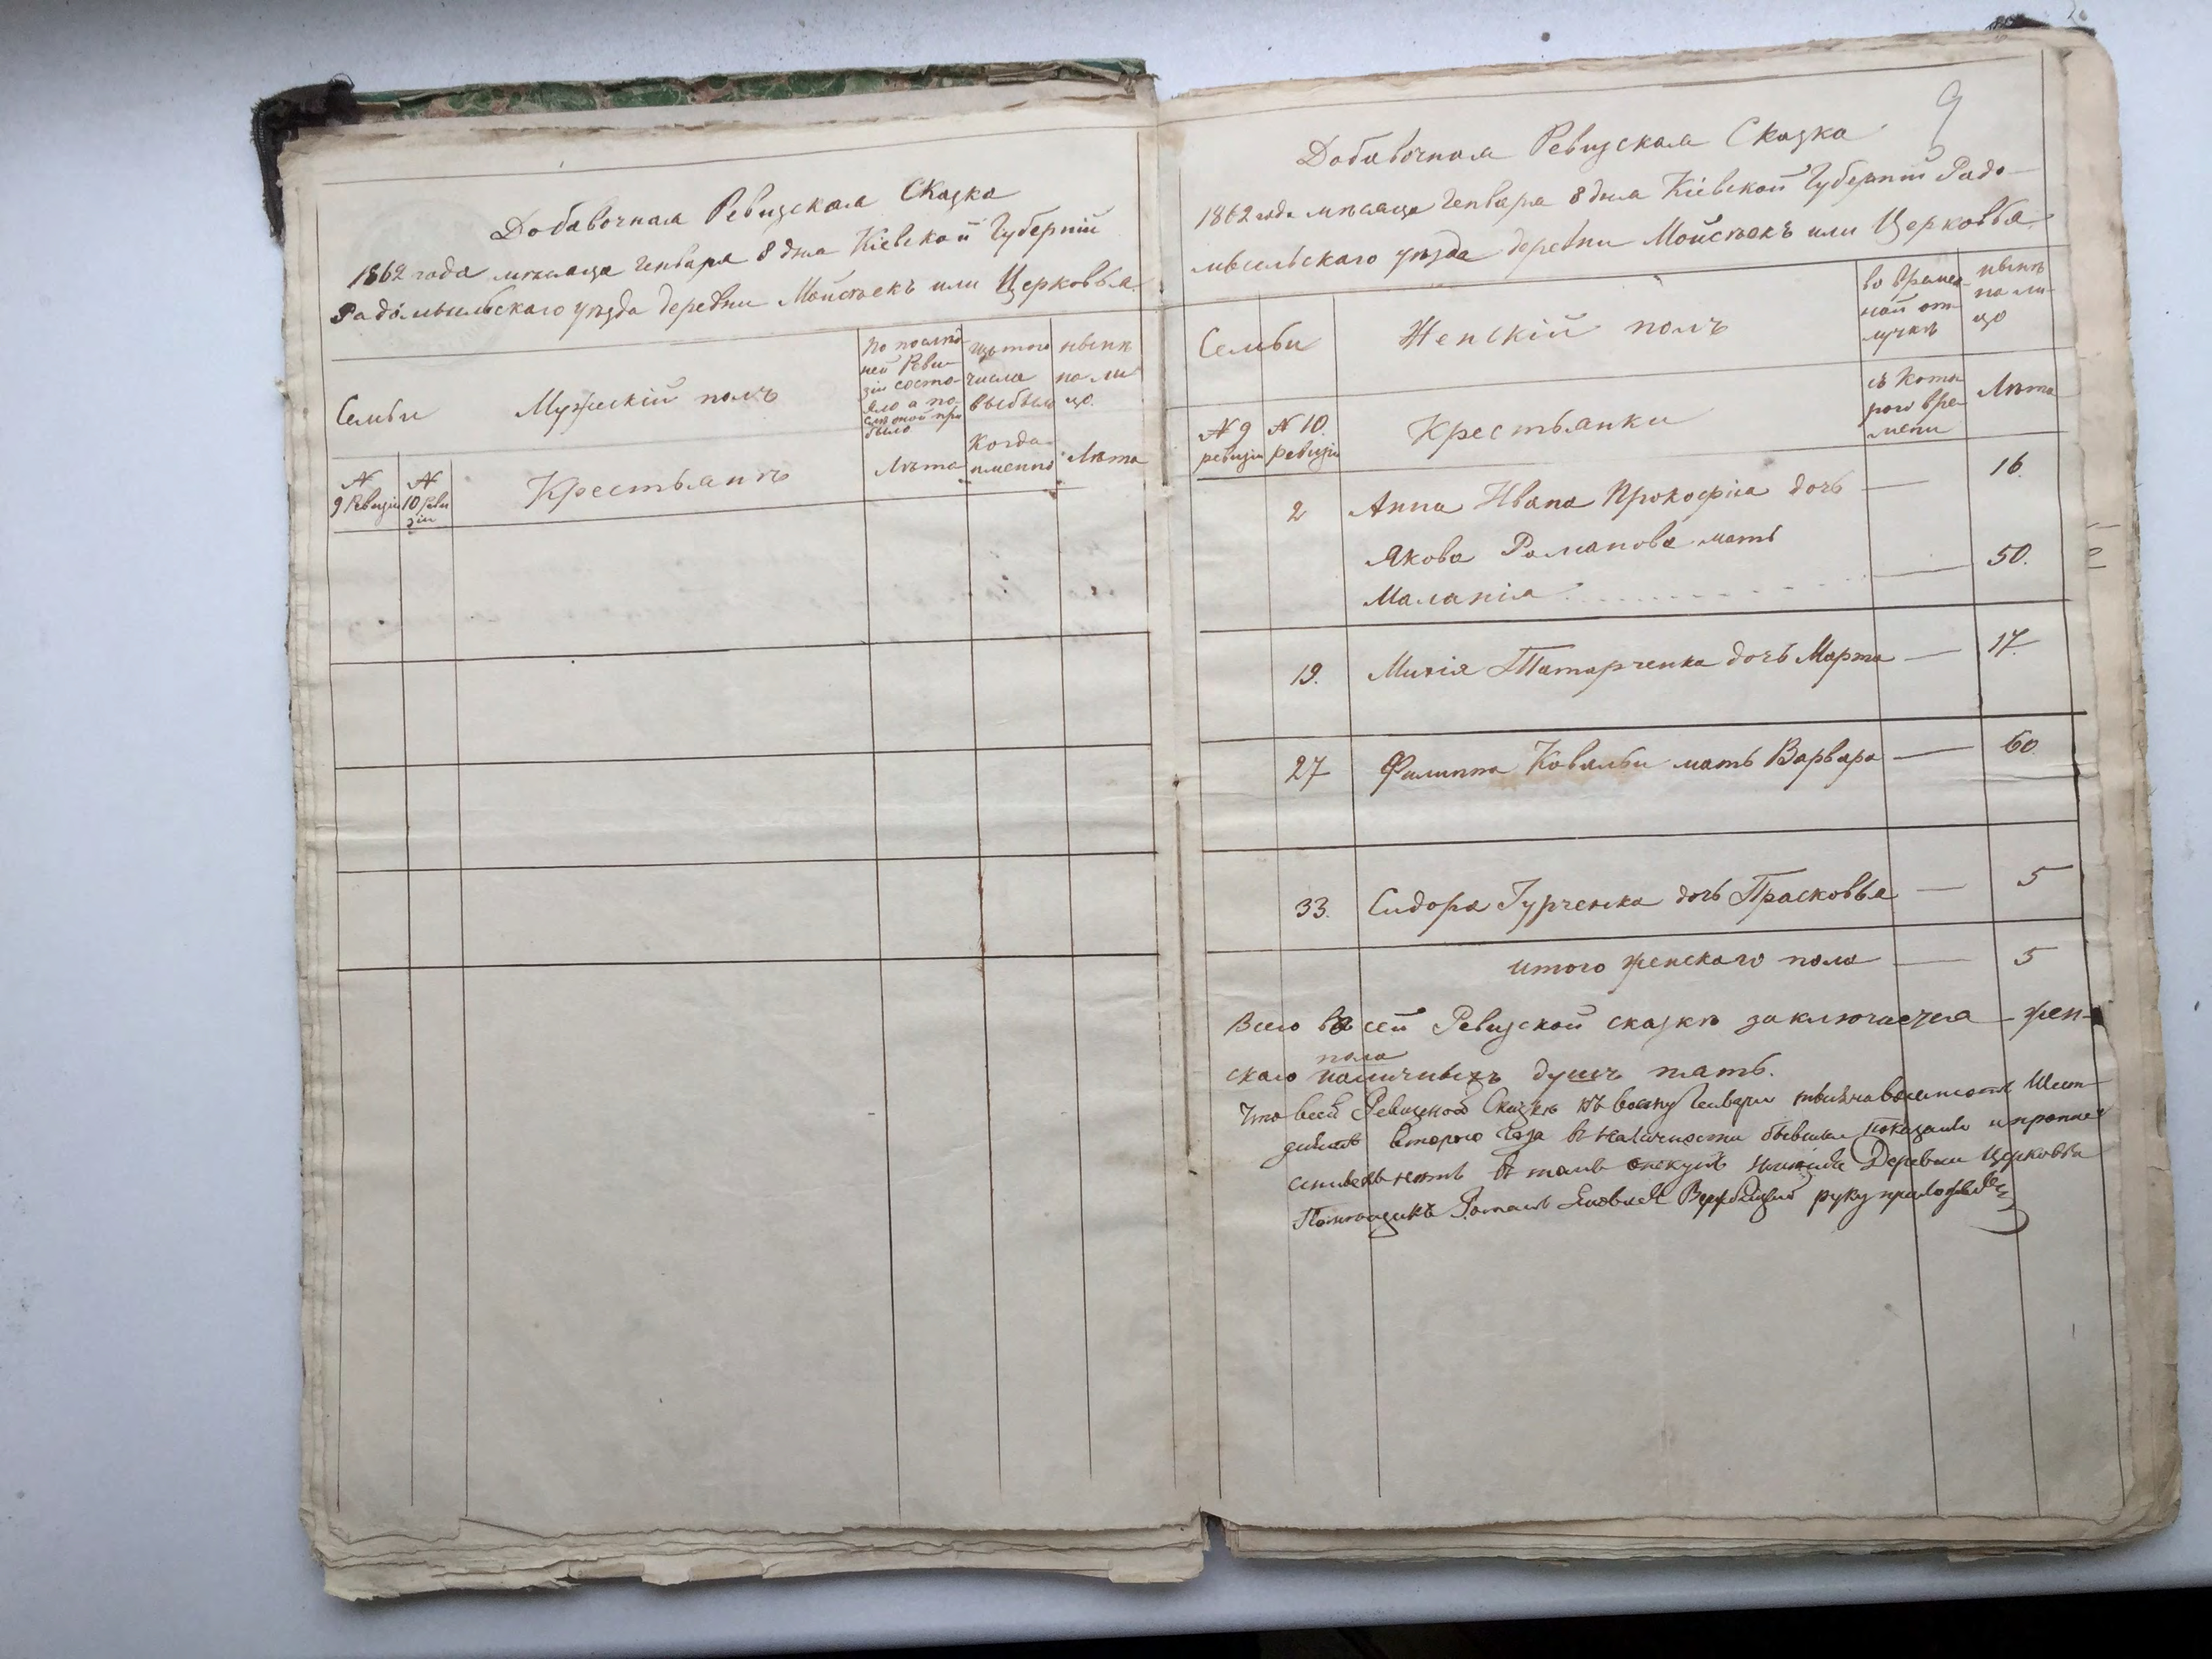 Добавочная Ревизская Сказка
1862 года мѣсяца Генваря 8 дня Кіевской Губерніи
Радомысльскаго уѣзда деревни Мойсѣекъ или Церковья
Семьи
Мужескій полъ
по послѣд
ней Реви
зіи состо-
яло а по-
слѣ оной при
было
изъ того
числа
выбыло
нынѣ
на ли
цо
№
9 Ревизіи
№
10 реви
зіи
Крестьянъ
Лѣта
Когда
именно
Лѣта
9
Добавочная Ревизская Сказка
1862 года мѣсяца Генваря 8 дня Кіевской Губерніи Радо-
мысльскаго уѣзда деревни Мойсѣекъ или Церковья
Семьи
Женскій полъ
во времен-
ной от-
лучкѣ
нынѣ
на ли-
цо
№ 9
ревизіи
№ 10.
ревизіи
Крестьянки
съ кото
раго вре-
мени
Лѣта
2 Анна Ивана Прокофіа дочь — 16.
Якова Романова мать
Маланія — 50.
19. Татарченка дочь Марта — 17.
27 Филиппа Коваля мать Варвара — 60
33. Сидора Гурченка дочь Прасковья — 5
итого женскаго пола — 5
Всего въ сей Ревизской сказкѣ заключается жен-
скаго пола наличныхъ душъ пять.
Что всей Ревизской Сказкѣ Генваря Шест-
второго года в наличности показани и
нетъ в томъ Деревни Церковья
Романъ руку приложилъ